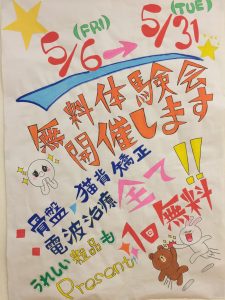 (FRI) (TUE)
5/6→5/31
無料体験会
開催します
骨盤・猫背矯正
電波治療
全て!!
うれしい粗品も
Present
1回無料